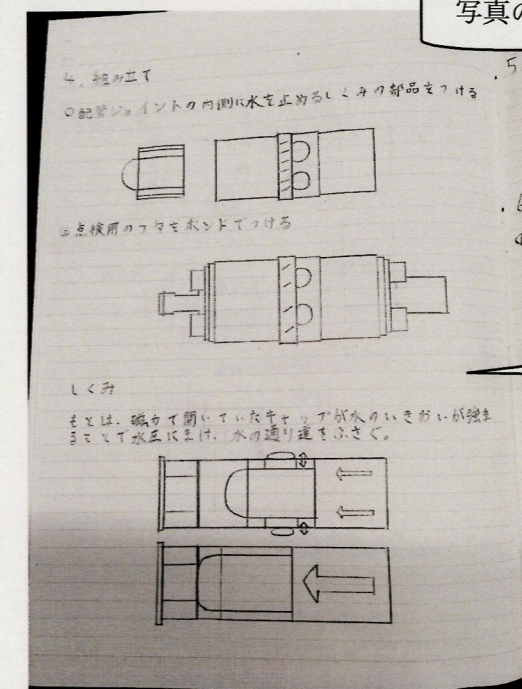 写真の
4. 組み立て
①配管ジョイントの内側に水を止めるしくみの部品をつける
②点検用のフタをボンドでつける
しくみ
もとは、磁力で開いていたキャップが水のいきおいが強ま
ることで水圧に負け、水の通り道をふさぐ。